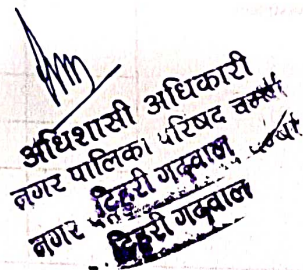 अधिशासी अधिकारी
नगर पालिका परिषद चम्बा
टिहरी गढ़वाल
नगर
टिहरी गढ़वाल